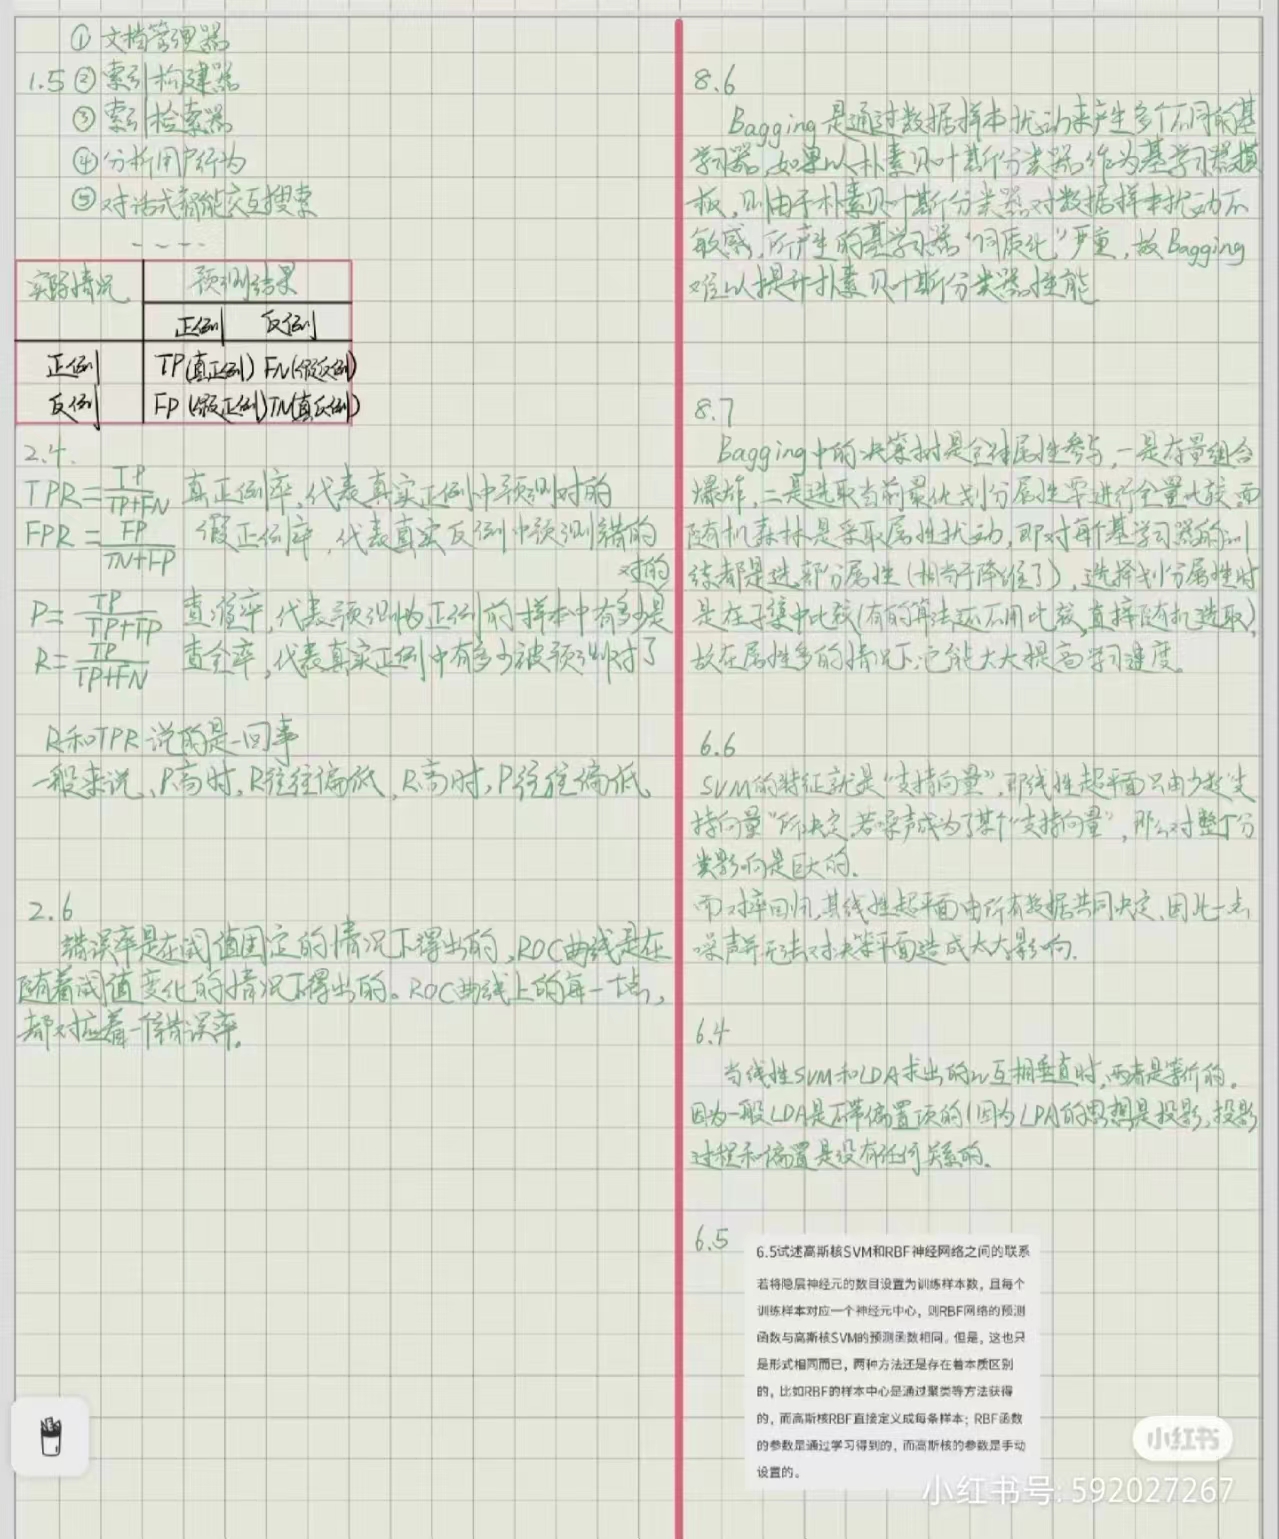 ① 文档管理器
1.5 ② 索引构建器
③ 索引检索器
④ 分析用户行为
⑤ 对话式智能交互搜索
----
实际情况 预测结果
正例 反例
正例 TP(真正例) FN(假反例)
反例 FP(假正例) TN(真反例)
2.4.
TPR=TP/TP+FN 真正例率，代表真实正例中预测对的
FPR=FP/TN+FP 假正例率，代表真实反例中预测错的
对的
P=TP/TP+FP 查准率，代表预测为正例的样本中有多少是
R=TP/TP+FN 查全率，代表真实正例中有多少被预测对了
R和TPR说的是一回事
一般来说、P高时，R往往偏低，R高时，P往往偏低
2.6
错误率是在阈值固定的情况下得出的，ROC曲线是在
随着阈值变化的情况下得出的。ROC曲线上的每一个点，
都对应着一个错误率。
8.6
Bagging是通过数据样本扰动来产生多个不同的基
学习器，如果以朴素贝叶斯分类器作为基学习器模
板，则由于朴素贝叶斯分类器对数据样本扰动不
敏感，所产生的基学习器“同质化”严重，故Bagging
难以提升朴素贝叶斯分类器性能
8.7
Bagging中的决策树是全体属性参与，一是存量组合
爆炸，二是选取当前最优划分属性要进行全量比较，而
随机森林是采取属性扰动，即对每个基学习器的训
练都是选部分属性(相当于降维了)，选择划分属性时
是在子集中比较(有的算法还不用比较，直接随机选取)，
故在属性多的情况下，它能大大提高学习速度。
6.6
SVM的特征就是“支持向量”，即线性超平面只由少数“支
持向量”所决定，若噪声成为了某个“支持向量”，那么对整个分
类影响是巨大的。
而对率回归，其线性超平面由所有数据共同决定，因此一点
噪声并无法对决策平面造成太大影响。
6.4
当线性SVM和LDA求出的w互相垂直时，两者是等价的。
因为一般LDA是不带偏置项的(因为LDA的思想是投影，投影
过程和偏置是没有任何关系的。
6.5
6.5试述高斯核SVM和RBF神经网络之间的联系
若将隐层神经元的数目设置为训练样本数，且每个
训练样本对应一个神经元中心，则RBF网络的预测
函数与高斯核SVM的预测函数相同。但是，这也只
是形式相同而已，两种方法还是存在着本质区别
的，比如RBF的样本中心是通过聚类等方法获得
的，而高斯核RBF直接定义成每条样本；RBF函数
的参数是通过学习得到的，而高斯核的参数是手动
设置的。
小红书
小红书号：592027267